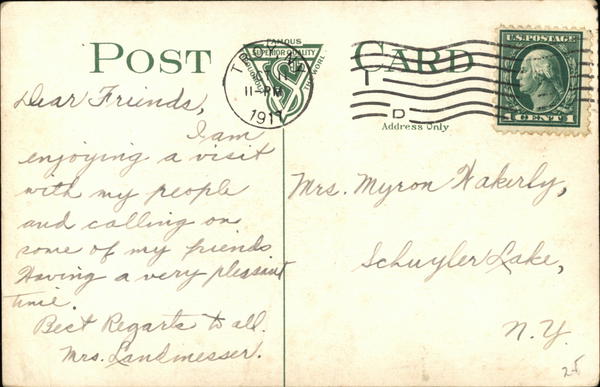 POST CARD
FAMOUS
SUPERIOR QUALITY
U.S. POSTAGE
1 CENT 1
11-PM
1911
D
Address Only
Dear Friends,
I am
enjoying a visit
with my people
and calling on
some of my friends
Having a very pleasant
time.
Best Regards to all.
Mrs. Landmesser.
Mrs. Myron Wakerly,
Schuyler Lake,
N.Y.
25